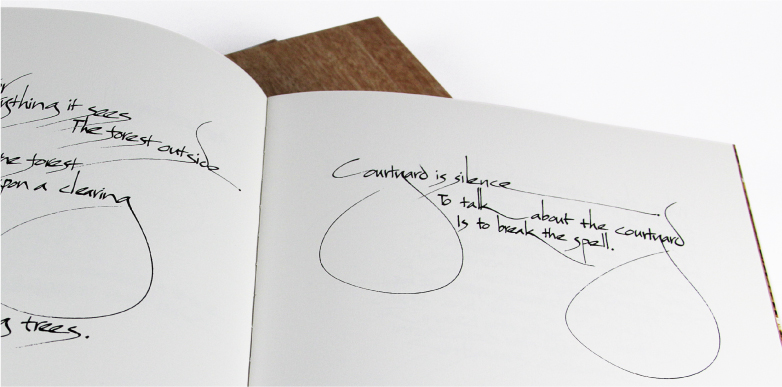 ything it sees
The forest outside
the forest
upon a clearing
g trees.
Courtyard is silence
To talk about the courtyard
Is to break the spell.